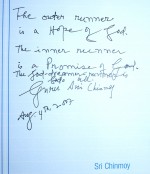 The outer runner
is a Hope of God.
The inner runner
is a Promise of God.
The God-dreamer runner is
Sri Chinmoy
Aug. 4th, 2007
Sri Chinmoy